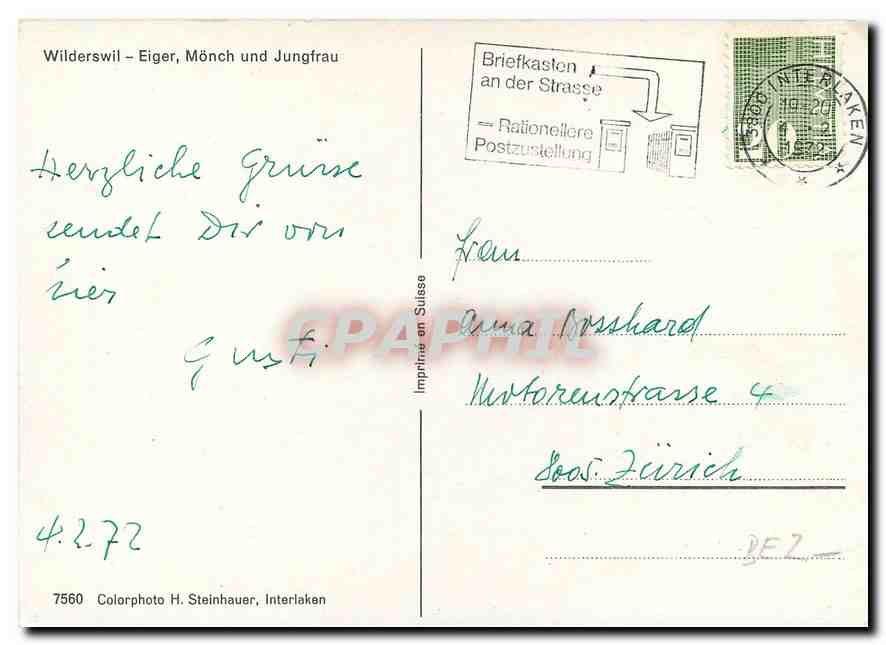 Wilderswil – Eiger, Mönch und Jungfrau
Herzliche Grüsse
sendet Dir von
hier
Gusti
4.2.72
7560 Colorphoto H. Steinhauer, Interlaken
Imprimé en Suisse
CPAPHIL
Briefkasten
an der Strasse
— Rationellere
Postzustellung
HELVETIA
3800 INTERLAKEN
19-20
2
1972
Frau
Anna Bosshard
Motorenstrasse 4
8005 Zürich